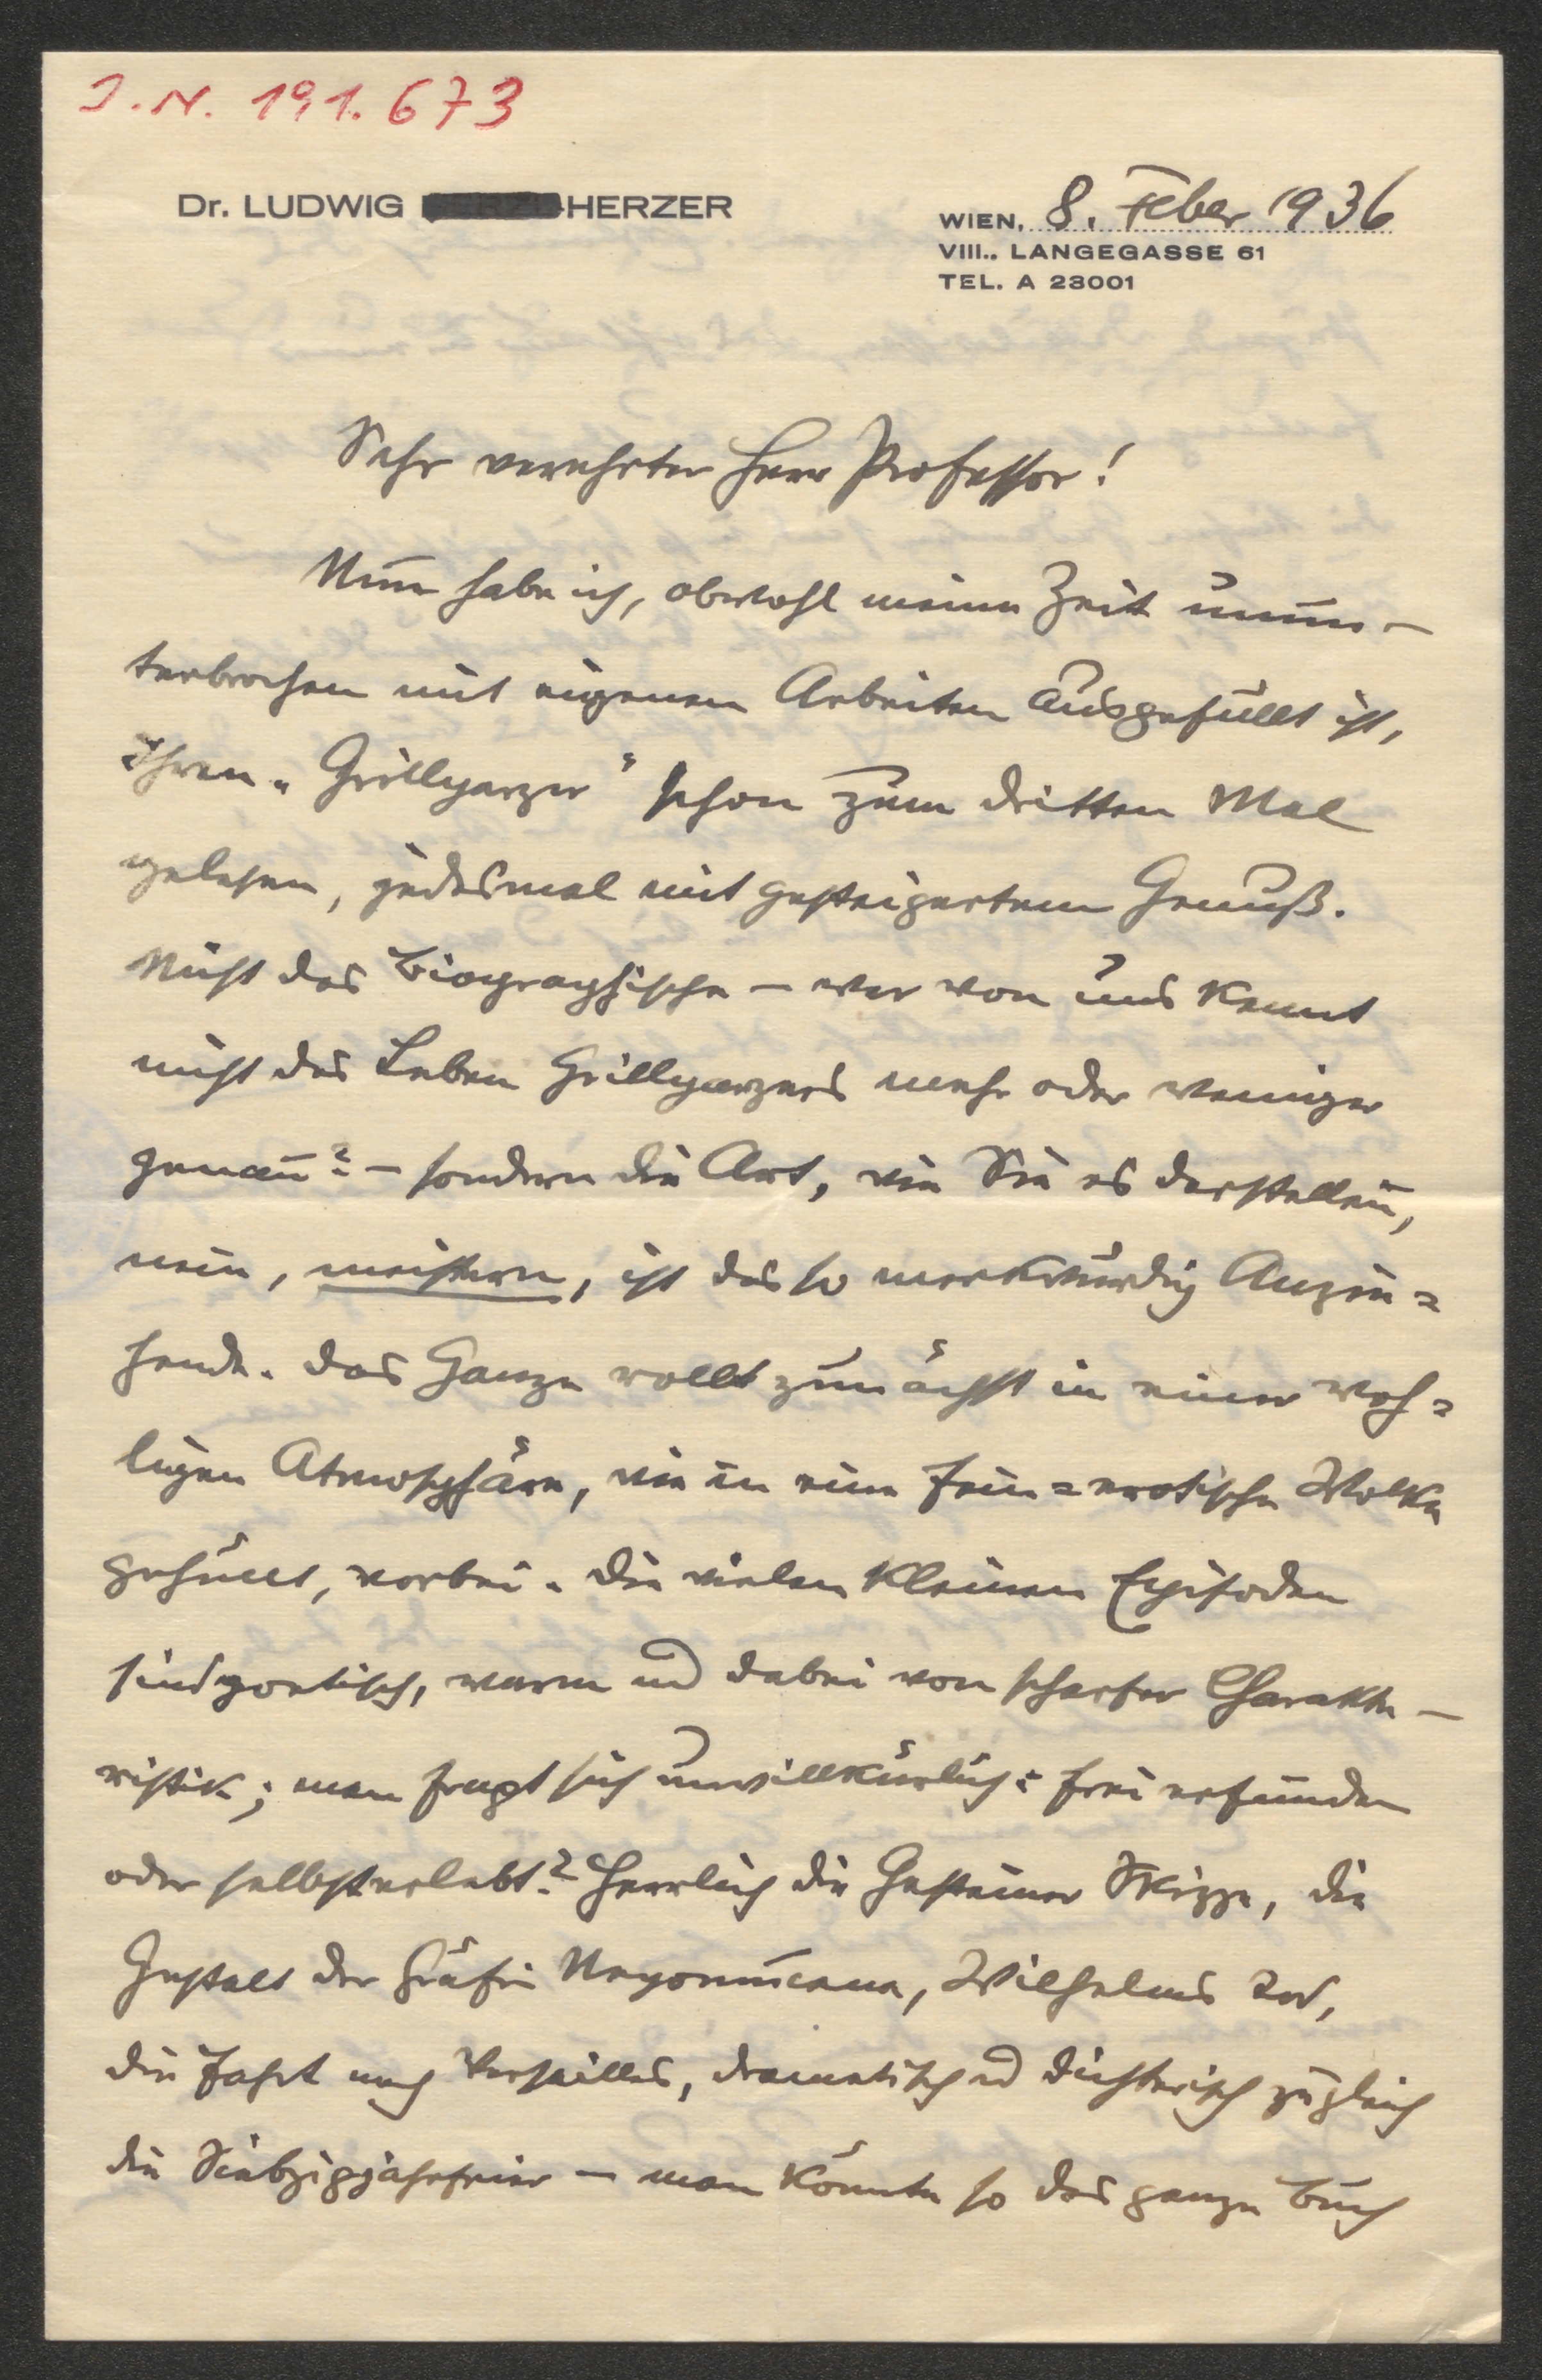 I.N. 191.673
Dr. LUDWIG HERZER
WIEN, 8. Feber 1936
VIII., LANGEGASSE 61
TEL. A 23001
Sehr verehrter Herr Professor!
Nun habe ich, obwohl meine Zeit unun-
terbrochen mit eigenen Arbeiten ausgefüllt ist,
Ihren „Grillparzer“ schon zum dritten Mal
gelesen, jedesmal mit gesteigertem Genuß.
Nicht das Biographische – wer von uns kennt
nicht das Leben Grillparzers mehr oder weniger
genau? – sondern die Art, wie Sie es darstellen,
nein, meistern, ist das so merkwürdig Anzie=
hende. Das Ganze rollt zunächst in einer woh=
ligen Atmosphäre, wie in eine fein=erotische Wolke
gehüllt, vorbei. Die vielen kleinen Episoden
sind poetisch, warm und dabei von scharfer Charakte-
ristik; man fragt sich unwillkürlich: frei erfunden
oder selbsterlebt? Herrlich die Gasteiner Skizze, die
Gestalt der Gräfin Nepomucena, Wilhelms Tod,
die Fahrt nach Versailles, dramatisch und dichterisch zugleich
die Siebzigjahrfeier – man könnte so das ganze Buch